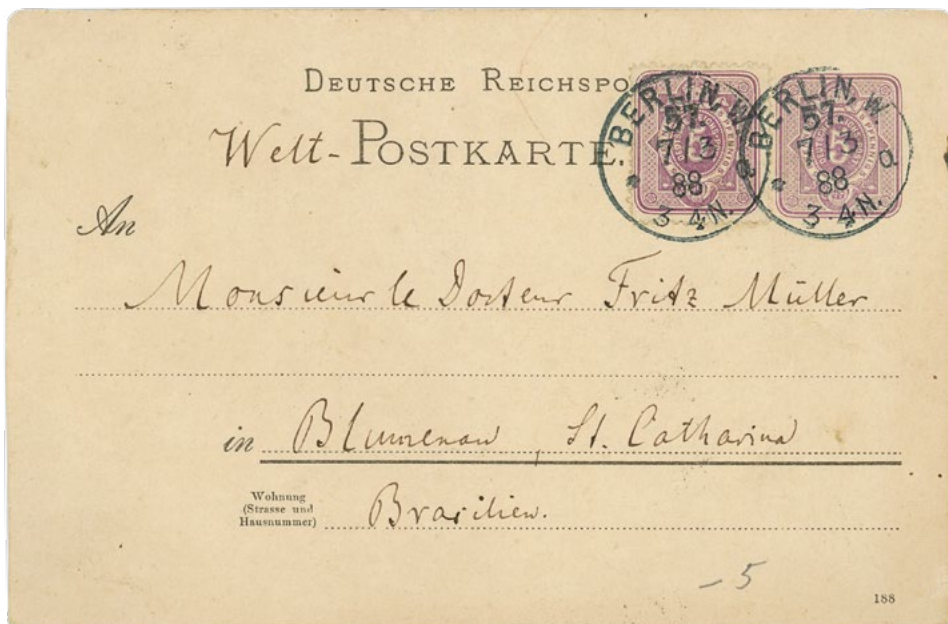 DEUTSCHE REICHSPO
Welt-POSTKARTE.
BERLIN, W
57.
7 13
88
3-4N.
a
BERLIN, W
57.
7 13
88
3-4N.
a
An
Monsieur le Docteur Fritz Müller
in Blumenau, St. Catharina
Wohnung
(Strasse und
Hausnummer)
Brasilien.
– 5
188